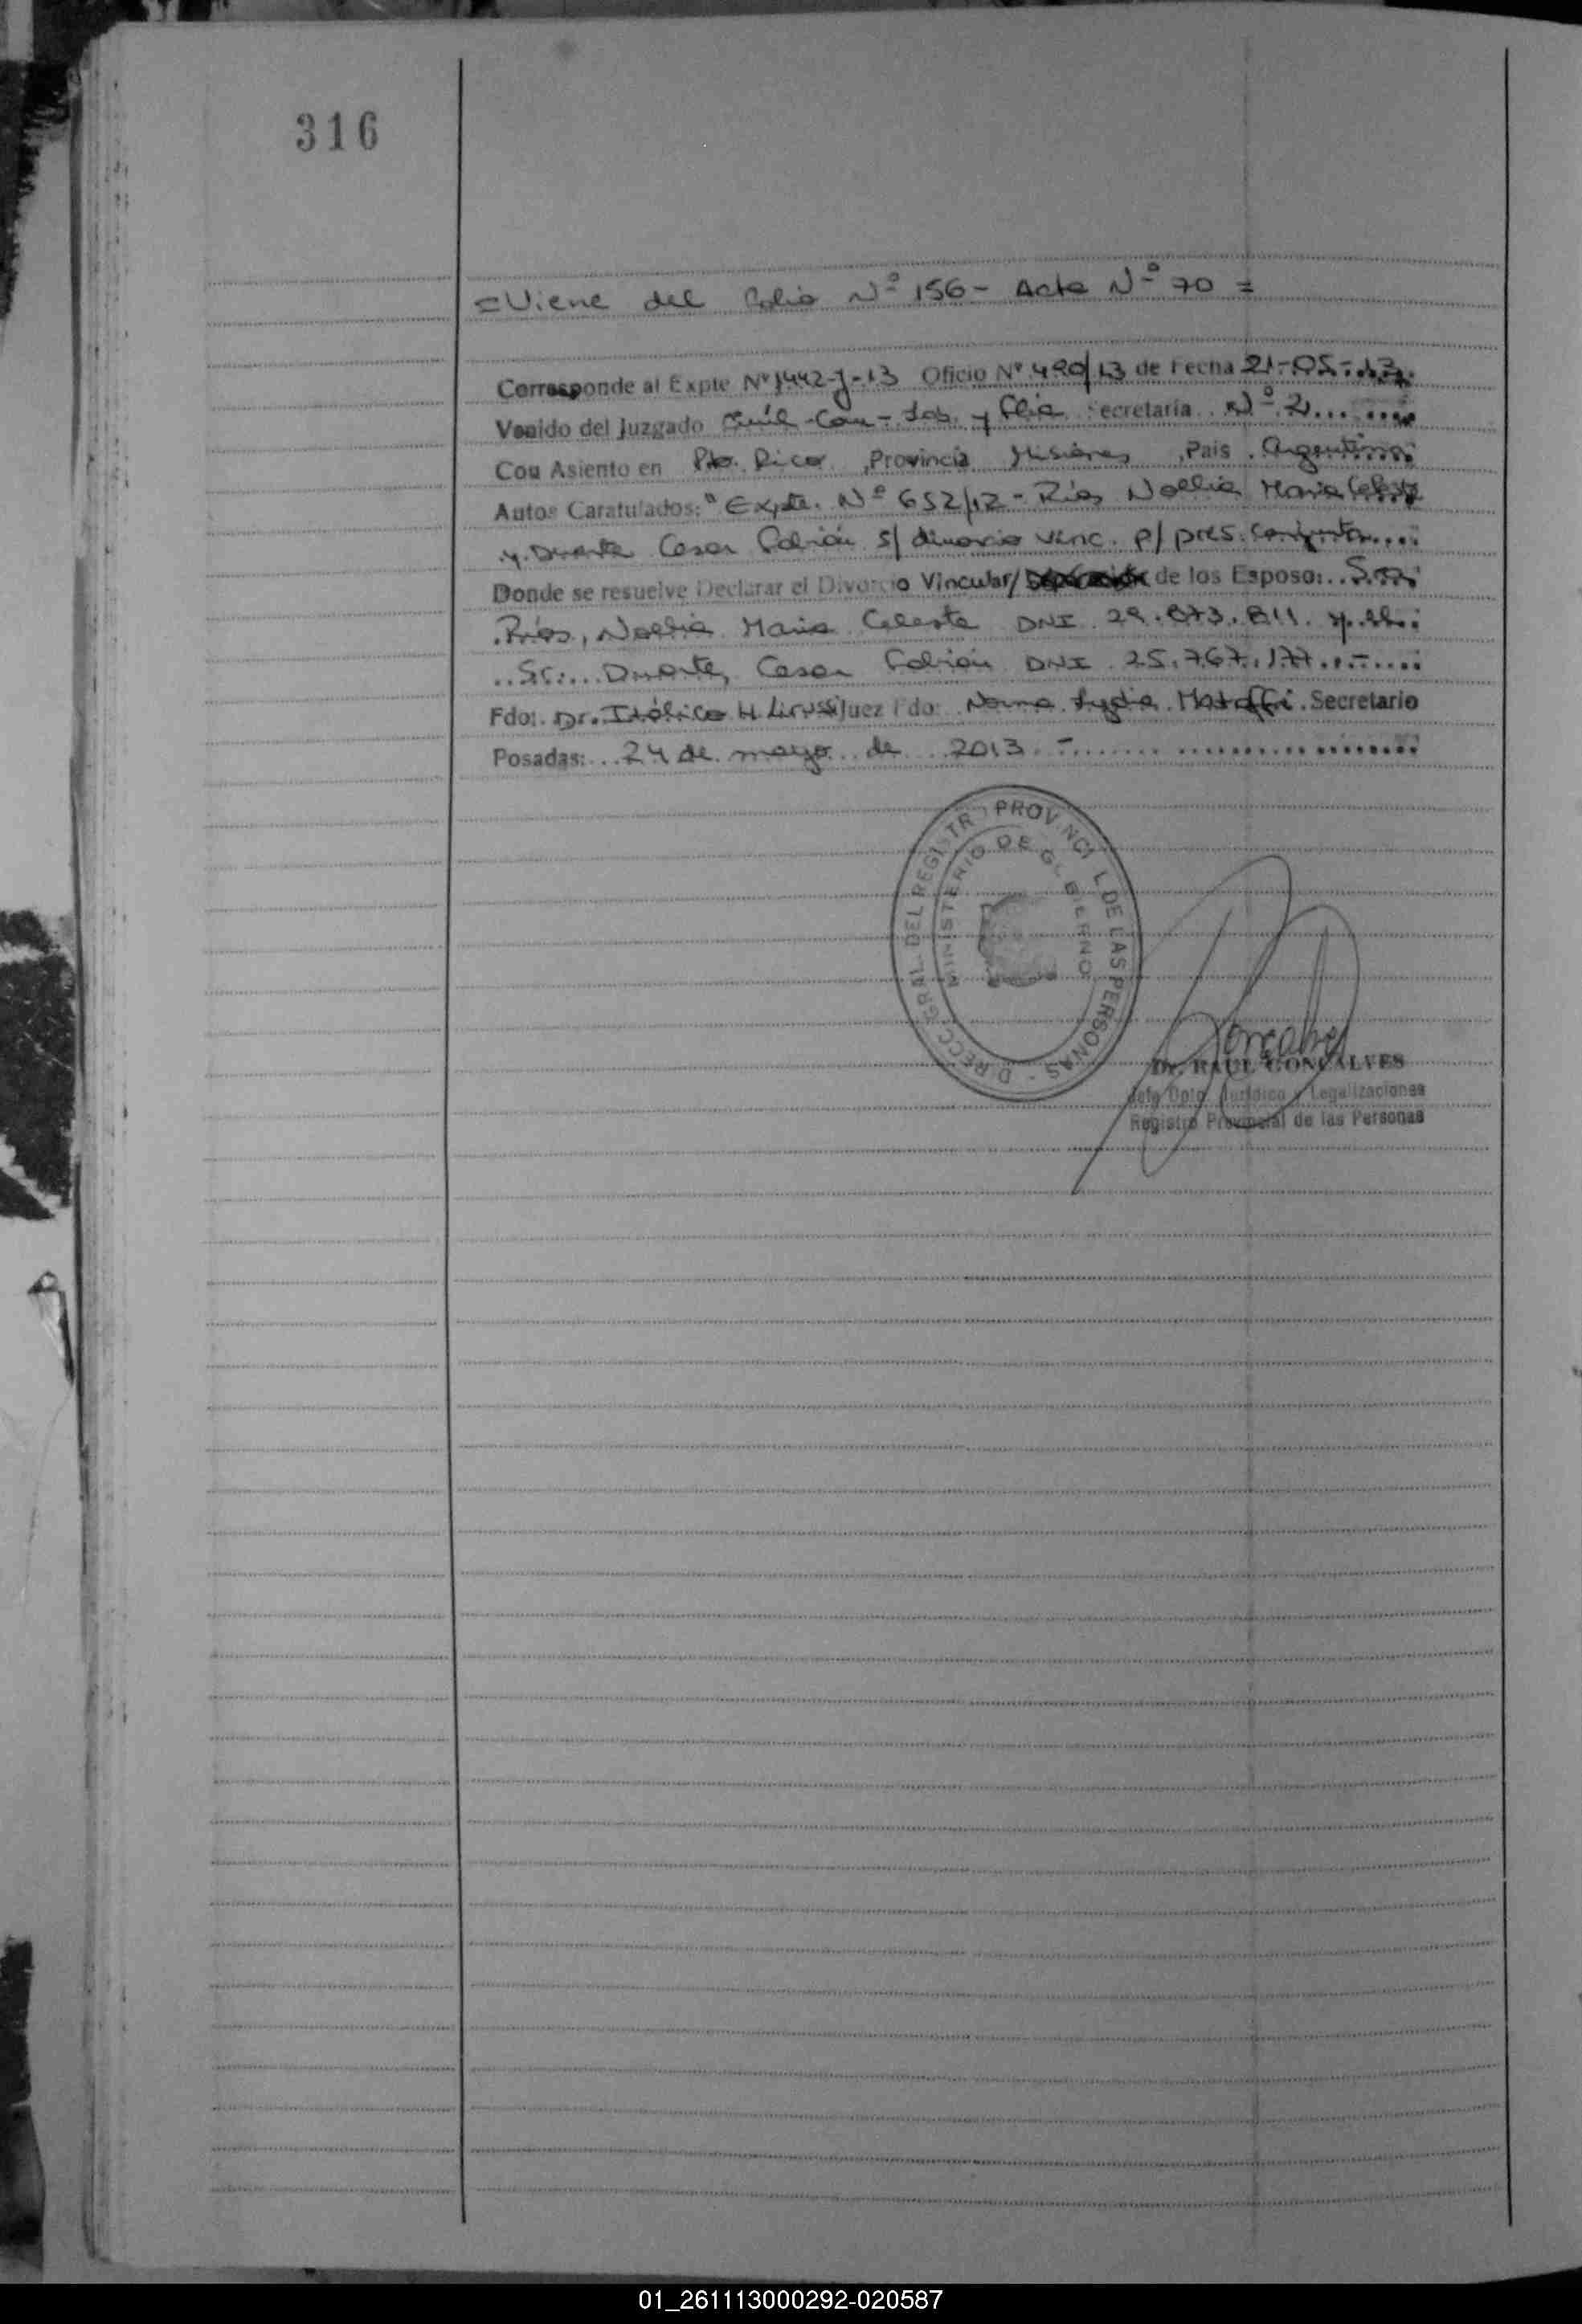 316
=Viene del Folio Nº 156- Acta Nº 70 =
Corresponde al Expte Nº 1442-J-13 Oficio Nº 490/13 de Fecha 21-05-13
Venido del Juzgado Civil-Com-Lab. y Flia. Secretaría Nº 2
Con Asiento en Pto. Rico, Provincia Misiones, País Argentina
Autos Caratulados: "Expte. Nº 652/12- Ríos Noelia Maria Celeste
y Duarte Cesar Fabián s/ divorcio vinc. p/ pres. conjunta
Donde se resuelve Declarar el Divorcio Vincular/ de los Esposos: Sra.
Ríos, Noelia Maria Celeste DNI 29.873.811. y el
Sr. Duarte, Cesar Fabián DNI 25.767.177.-
Fdo: Dr. Itálico H. Juez Fdo: Norma Lydia Secretario
Posadas: 24 de mayo de 2013.-
DIRECC. GRAL. DEL REGISTRO PROVINCIAL DE LAS PERSONAS -
MINISTERIO DE GOBIERNO
Dr. RAUL GONCALVES
Jefe Dpto. Jurídico y Legalizaciones
Registro Provincial de las Personas
01_261113000292-020587